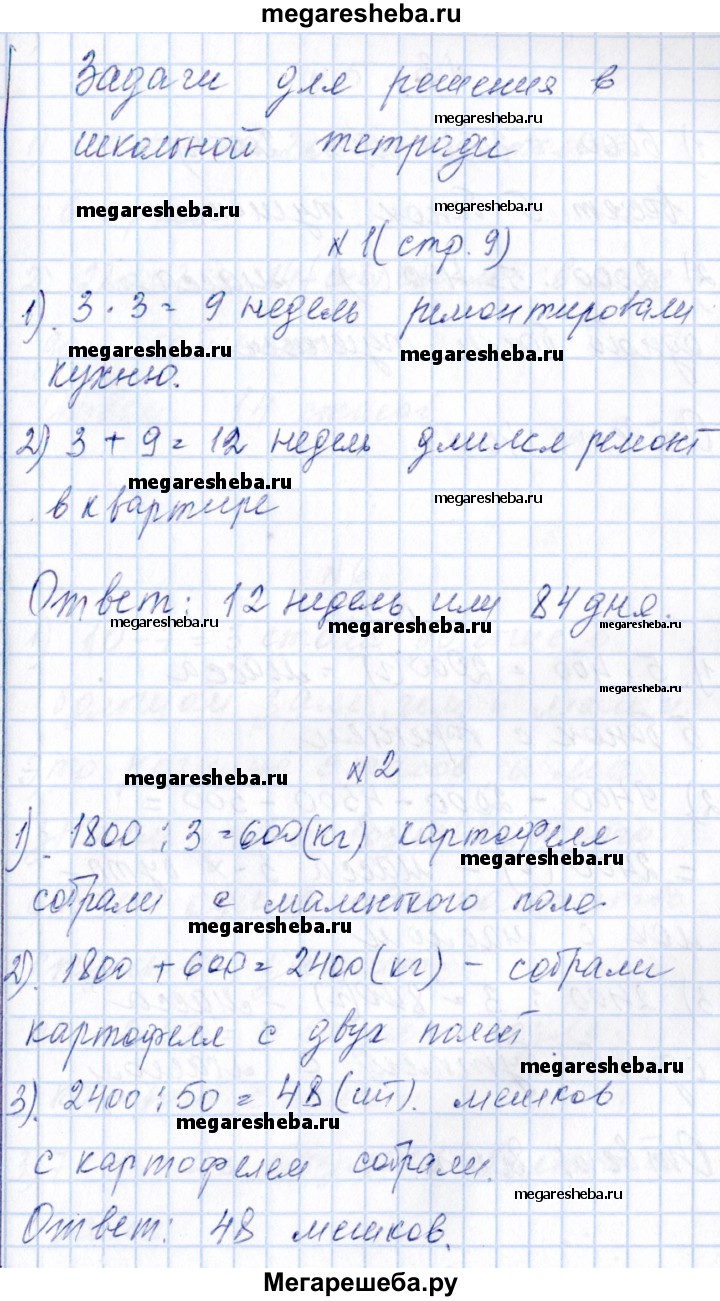 megaresheba.ru
Задачи для решения в
megaresheba.ru
школьной тетради
megaresheba.ru megaresheba.ru
№ 1 (стр. 9)
1). 3 · 3 = 9 недель ремонтировали
megaresheba.ru megaresheba.ru
кухню.
2) 3 + 9 = 12 недель длился ремонт
megaresheba.ru megaresheba.ru
в квартире
Ответ: 12 недель или 84 дня.
megaresheba.ru megaresheba.ru megaresheba.ru
megaresheba.ru
№ 2
megaresheba.ru
1). 1800 : 3 = 600 (кг) картофеля
megaresheba.ru
собрали с маленького поля
megaresheba.ru
2). 1800 + 600 = 2400 (кг) - собрали
картофеля с двух полей
megaresheba.ru
3). 2400 : 50 = 48 (шт). мешков
megaresheba.ru
с картофелем собрали.
megaresheba.ru
Ответ: 48 мешков.
Мегарешеба.ру